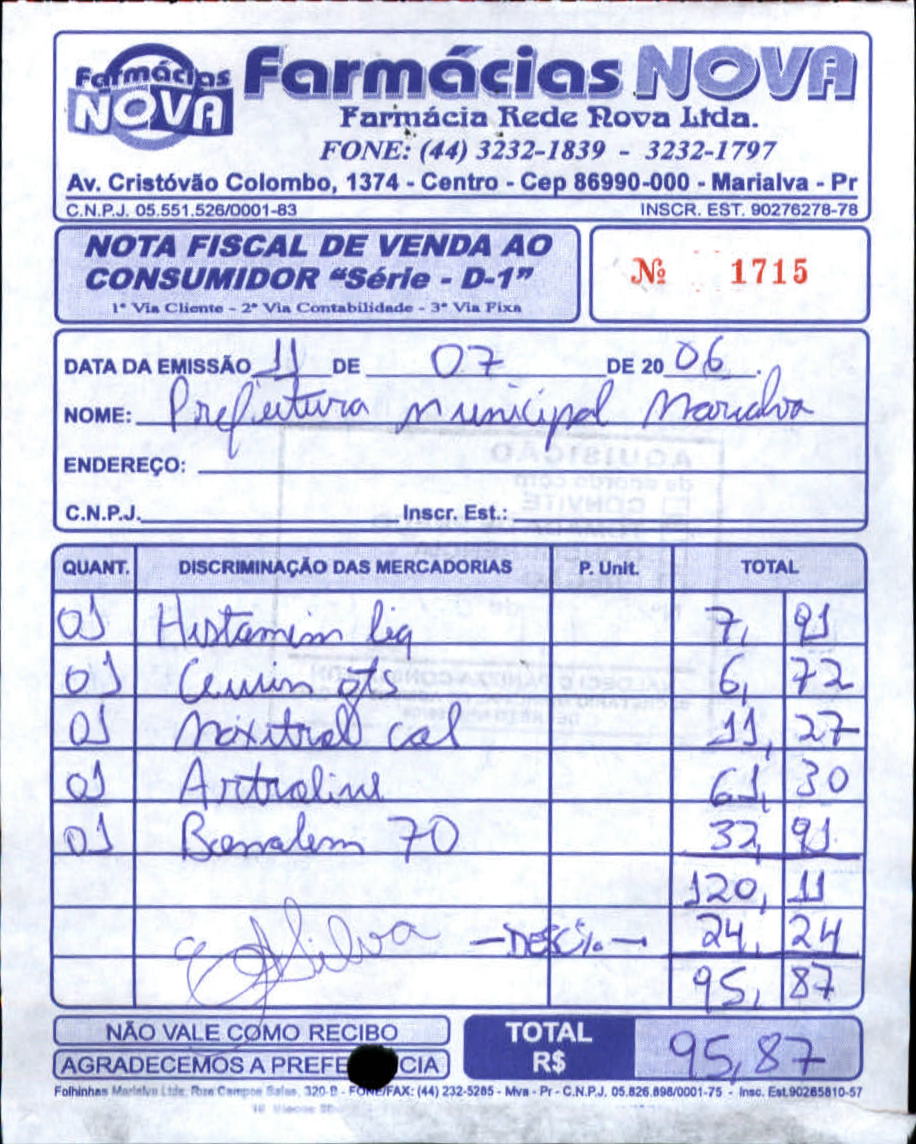 Farmácias NOVA Farmácias NOVA
Farmácia Rede Nova Ltda.
FONE: (44) 3232-1839 - 3232-1797
Av. Cristóvão Colombo, 1374 - Centro - Cep 86990-000 - Marialva - Pr
C.N.P.J. 05.551.526/0001-83 INSCR. EST. 90276278-78
NOTA FISCAL DE VENDA AO
CONSUMIDOR "Série - D-1"
Nº 1715
1ª Via Cliente - 2ª Via Contabilidade - 3ª Via Fixa
DATA DA EMISSÃO 11 DE 07 DE 2006.
NOME: Prefeitura Municipal Marialva
ENDEREÇO:
C.N.P.J. Inscr. Est.:
QUANT. DISCRIMINAÇÃO DAS MERCADORIAS P. Unit. TOTAL
01 Histamim liq 7,91
01 gts 6,72
01 Maxitrol col 11,27
01 Artroline 61,30
01 70 32,91
120,11
Silva 24,24
95,87
NÃO VALE COMO RECIBO
AGRADECEMOS A PREFE CIA
TOTAL R$ 95,87
Folhinhas Marialva Ltda. Rua Campos Sales, 320-B - FONE/FAX: (44) 232-5285 - Mva - Pr - C.N.P.J. 05.826.898/0001-75 - Insc. Est.90265810-57